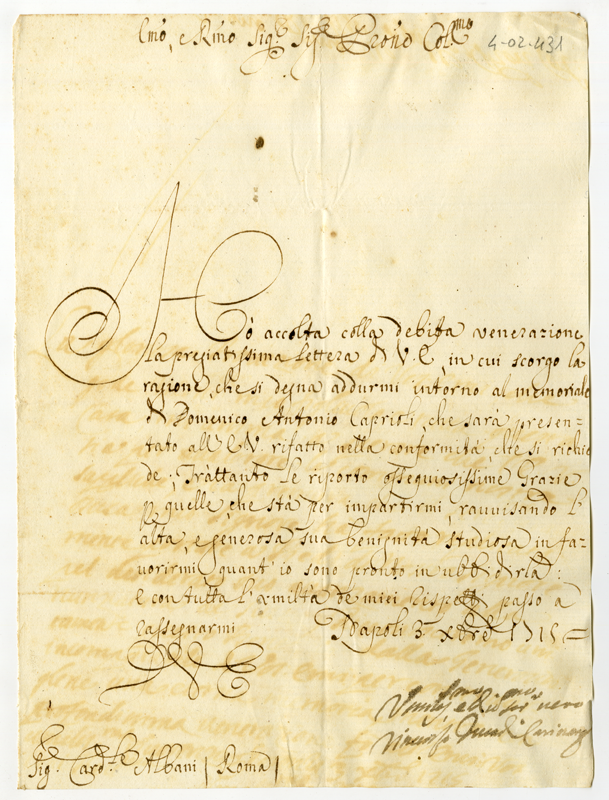 Emo, e Rmo Sig.r Sig.r Prone Col.mo 4-02.431
Hò accolta colla debita venerazione
la pregiatissima lettera di V.E., in cui scorgo la
ragione, che si degna addurmi intorno al memoriale
di Domenico Antonio Caprioli, che sarà presen-
tato all'E.V. rifatto nella conformità, che si richie
de; Trattanto le riporto ossequiosissime Grazie
p quelle, che stà per impartirmi, ravvisando l'
alta, e generosa sua benignità studiosa in fa-
vorirmi, quant'io sono pronto in ubbidirla:
e con tutta l'umiltà de miei rispetti passo a
rassegnarmi Napoli 3 xbre 1715
D V E
Sig.r Card.le Albani | Roma |